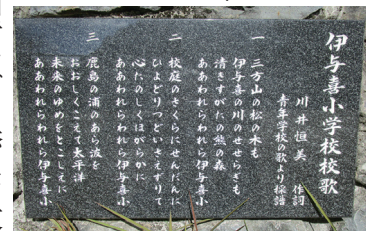 伊与喜小学校校歌
川井恒美 作詞
青年学校の歌より採譜
一
三方山の松の木も
伊与喜の川のせせらぎも
清きすがたの熊の森
ああわれらわれら伊与喜小
二
校庭のさくらにせんだんに
ひよどりつどいさえずりて
心たのしくほがらかに
ああわれらわれら伊与喜小
三
鹿島の浦のあら波を
おおしくこえて太平洋
未来のゆめをとこしえに
ああわれらわれら伊与喜小